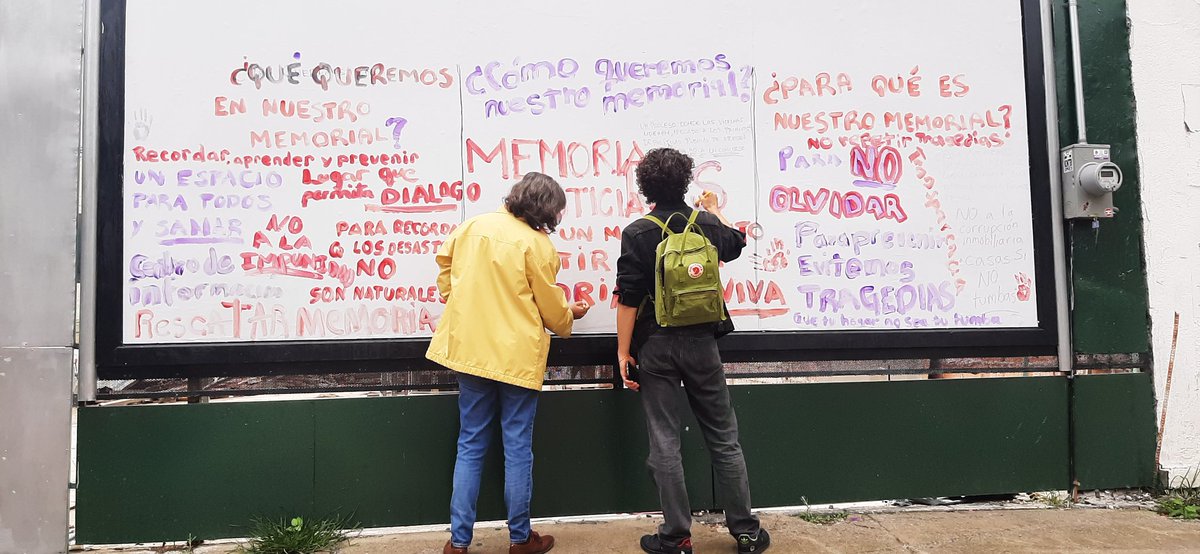 ¿QUÉ QUEREMOS
EN NUESTRO
MEMORIAL?
Recordar, aprender y prevenir
UN ESPACIO
PARA TODOS
Y SANAR
Lugar que
permita DIALOGO
NO
A LA
IMPUNIDAD
PARA RECORDA
Q LOS DESAST
NO
SON NATURALE
Centro de
informacion
RESCATAR MEMORIA
¿Cómo queremos
nuestro memorial?
MEMORIA
TICIA
UN M
TIR
VIVA
¿PARA QUÉ ES
NUESTRO MEMORIAL?
NO REPETIR TRAGEDIAS
PARA NO
OLVIDAR
Para prevenir
Evitemos
TRAGEDIAS
Que tu hogar no sea tu tumba
NO a la
corrupción
inmobiliaria
casas SI
NO
tumbas